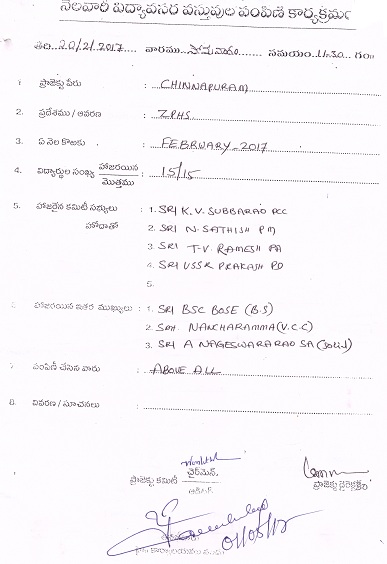 నెలవారీ విద్యావసర వస్తువుల పంపిణి కార్యక్రమం
తేది. 20/2/2017 వారము సోమవారం సమయం 11.30 గం
1. ప్రాజెక్టు పేరు : CHINNAPURAM
2. ప్రదేశము / ఆవరణ : ZPHS
3. ఏ నెల కొఱకు : FEBRUARY-2017
4. విద్యార్థుల సంఖ్య హాజరయిన / మొత్తము : 15/15
5. హాజరైన కమిటీ సభ్యులు : 1. SRI K.V. SUBBARAO PCC
హోదాతో 2. SRI N. SATHISH PM
3. SRI T.V. RAMESH PA
4. SRI USSR PRAKASH PD
5.
హాజరయిన ఇతర ముఖ్యులు : 1. SRI BSC BOSE (B.S)
2. SMT. NANCHARAMMA (V.C.C)
3. SRI A NAGESWARARAO SA
7. పంపిణీ చేసిన వారు : ABOVE ALL
8. వివరణ / సూచనలు :
ప్రాజెక్టు కమిటీ ఛైర్మెన్.
ప్రాజెక్టు డైరెక్టర్